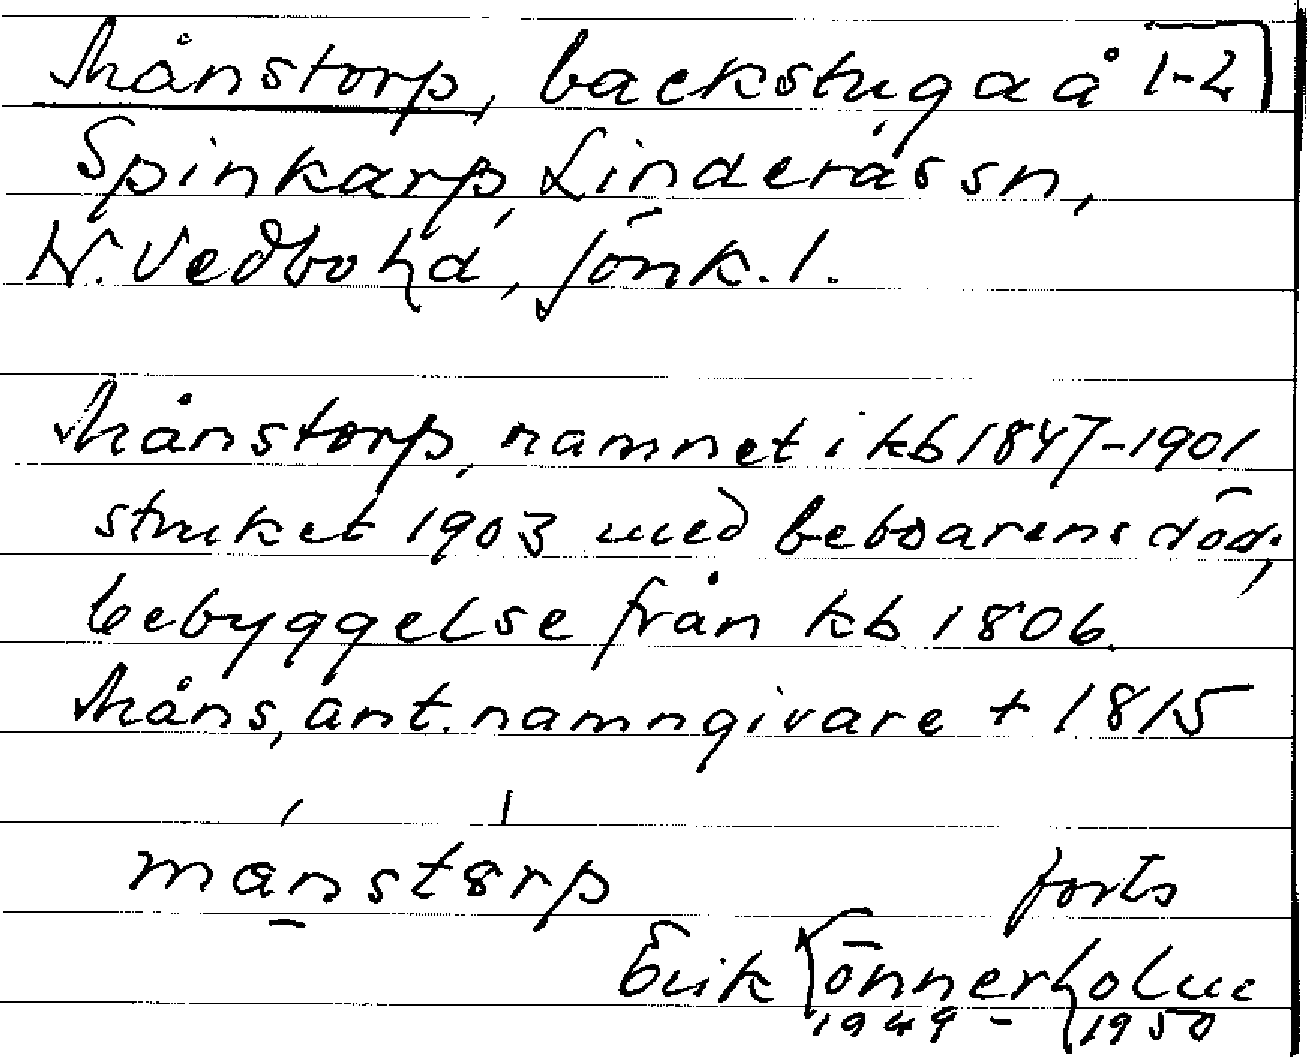 Månstorp, backstuga å 1-2
Spinkarp, Linderås sn,
N. Vedbo hd, Jönk. l.
Månstorp, namnet i kb 1847-1901
struket 1903 med beboarens död;
bebyggelse från kb 1806.
Måns, ant. namngivare + 1815
månstɵrp
forts
Erik Tönnerholm
1949 - 1950